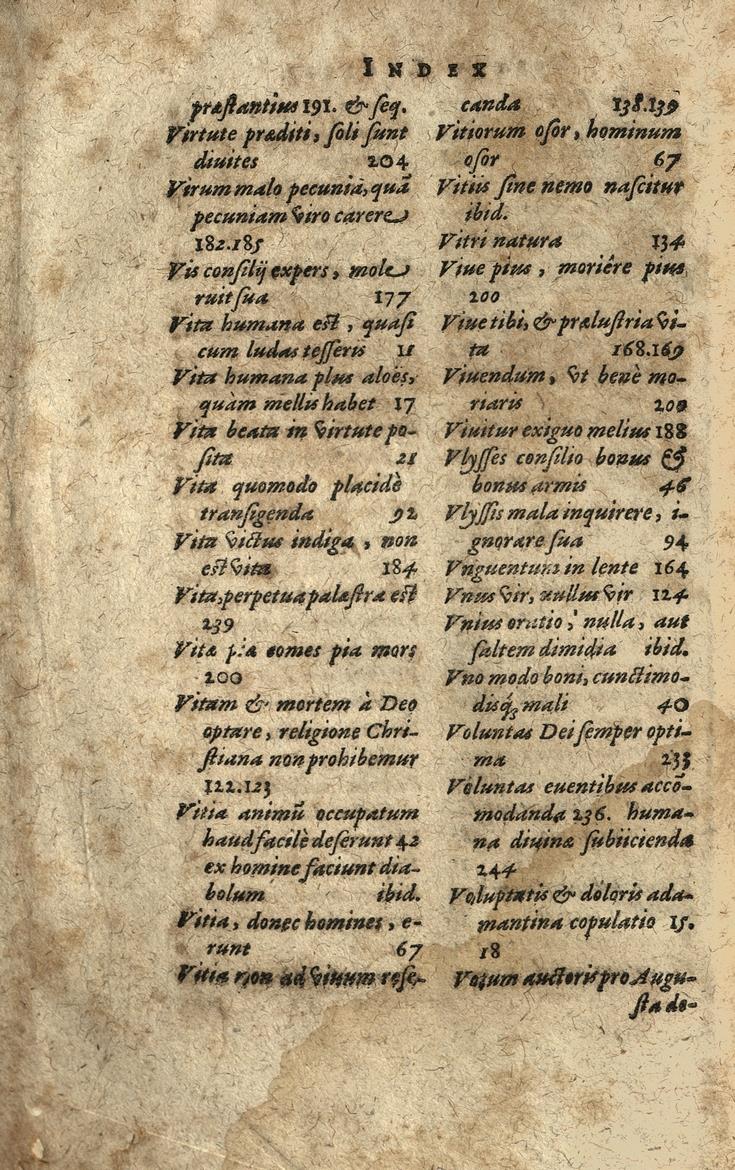 INDEX
præstantius 191. & seq.
Virtute præditi, soli sunt
diuites 204
Virum malo pecuniâ, quã
pecuniam viro carere
182.185
Vis consilij expers, mole
ruit sua 177
Vita humana est, quasi
cum ludas tesseris 11
Vita humana plus aloës,
quàm mellis habet 17
Vita beata in virtute po-
sita 21
Vita quomodo placidè
transigenda 92
Vita victus indiga, non
est vita 184
Vita, perpetua palæstra est
239
Vitæ piæ comes pia mors
200
Vitam & mortem à Deo
optare, religione Chri-
stiana non prohibemur
122.123
Vitia animũ occupatum
haud facilè deserunt 42
ex homine faciunt dia-
bolum ibid.
Vitia, donec homines, e-
runt 67
Vitia non ad viuum rese-
canda 138.139
Vitiorum osor, hominum
osor 67
Vitiis sine nemo nascitur
ibid.
Vitri natura 134
Viue pius, moriêre pius
200
Viue tibi, & prælustria vi-
ta 168.169
Viuendum, vt benè mo-
riaris 200
Viuitur exiguo melius 188
Vlysses consilio bonus &
bonus armis 46
Vlyssis mala inquirere, i-
gnorare sua 94
Vnguentum in lente 164
Vnus vir, nullus vir 124
Vnius oratio, nulla, aut
saltem dimidia ibid.
Vno modo boni, cunctimo-
disq́ꝫ mali 40
Voluntas Dei semper opti-
ma 233
Voluntas euentibus accõ-
modanda 236. huma-
na diuinæ subiicienda
244
Voluptatis & doloris ada-
mantina copulatio 15.
18
Votum auctoris pro Augu-
sta de-